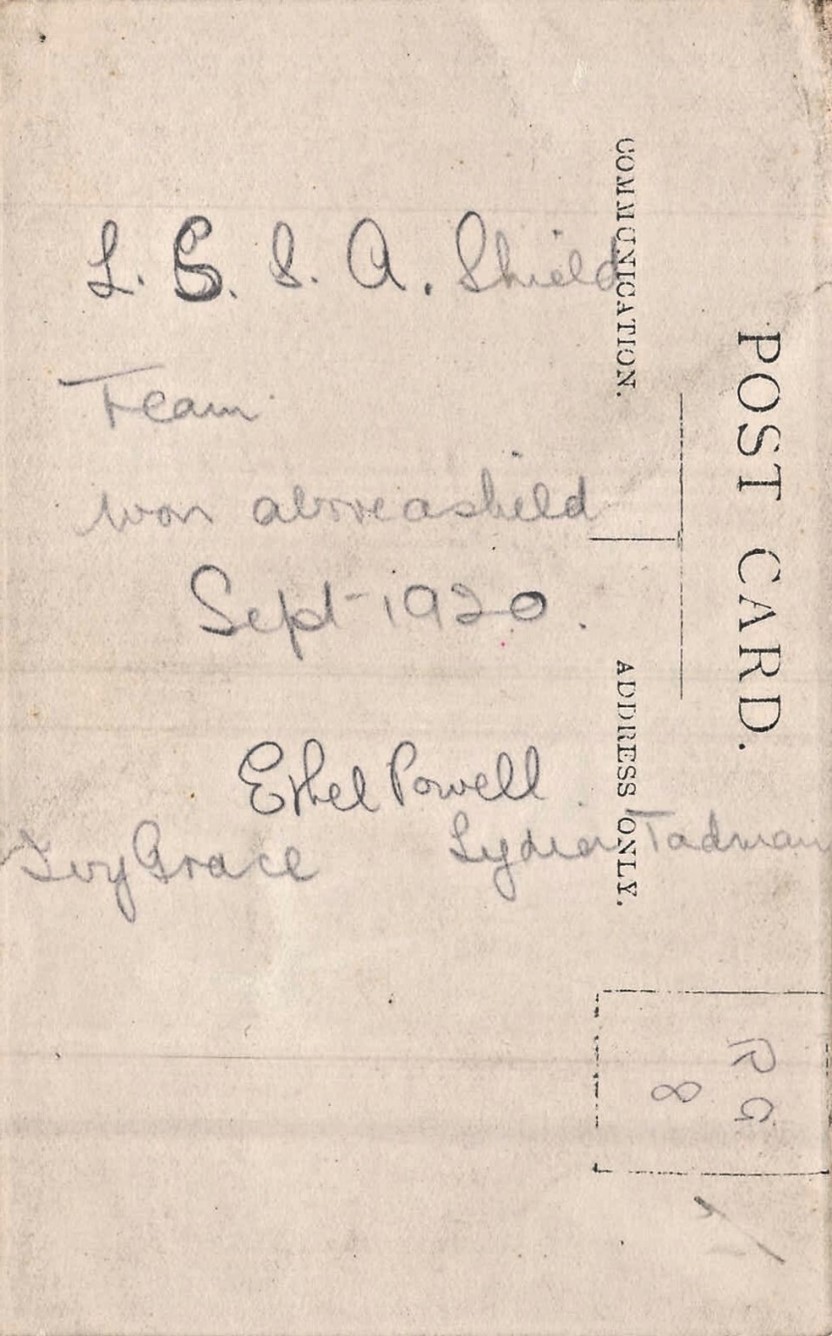 L. S. S. A. Shield
Team
won aboveasheild
Sept-1920.
Ethel Powell
Ivy Grace
Lydia Tadman
POST CARD.
COMMUNICATION.
ADDRESS ONLY.